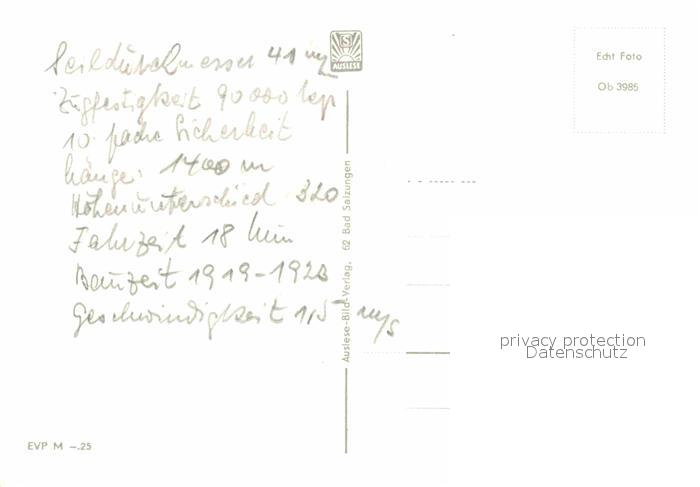 Seildurchmesser 41 m/m
Zugfestigkeit 90 000 kp
10 fache Sicherheit
Länge: 1400 m
Höhenunterschied 320
Fahrzeit 18 Min
Bauzeit 1919-1923
Geschwindigkeit 1,5 m/s
EVP M –.25
S
AUSLESE
Auslese-Bild-Verlag, 62 Bad Salzungen
Echt Foto
Ob 3985
privacy protection
Datenschutz